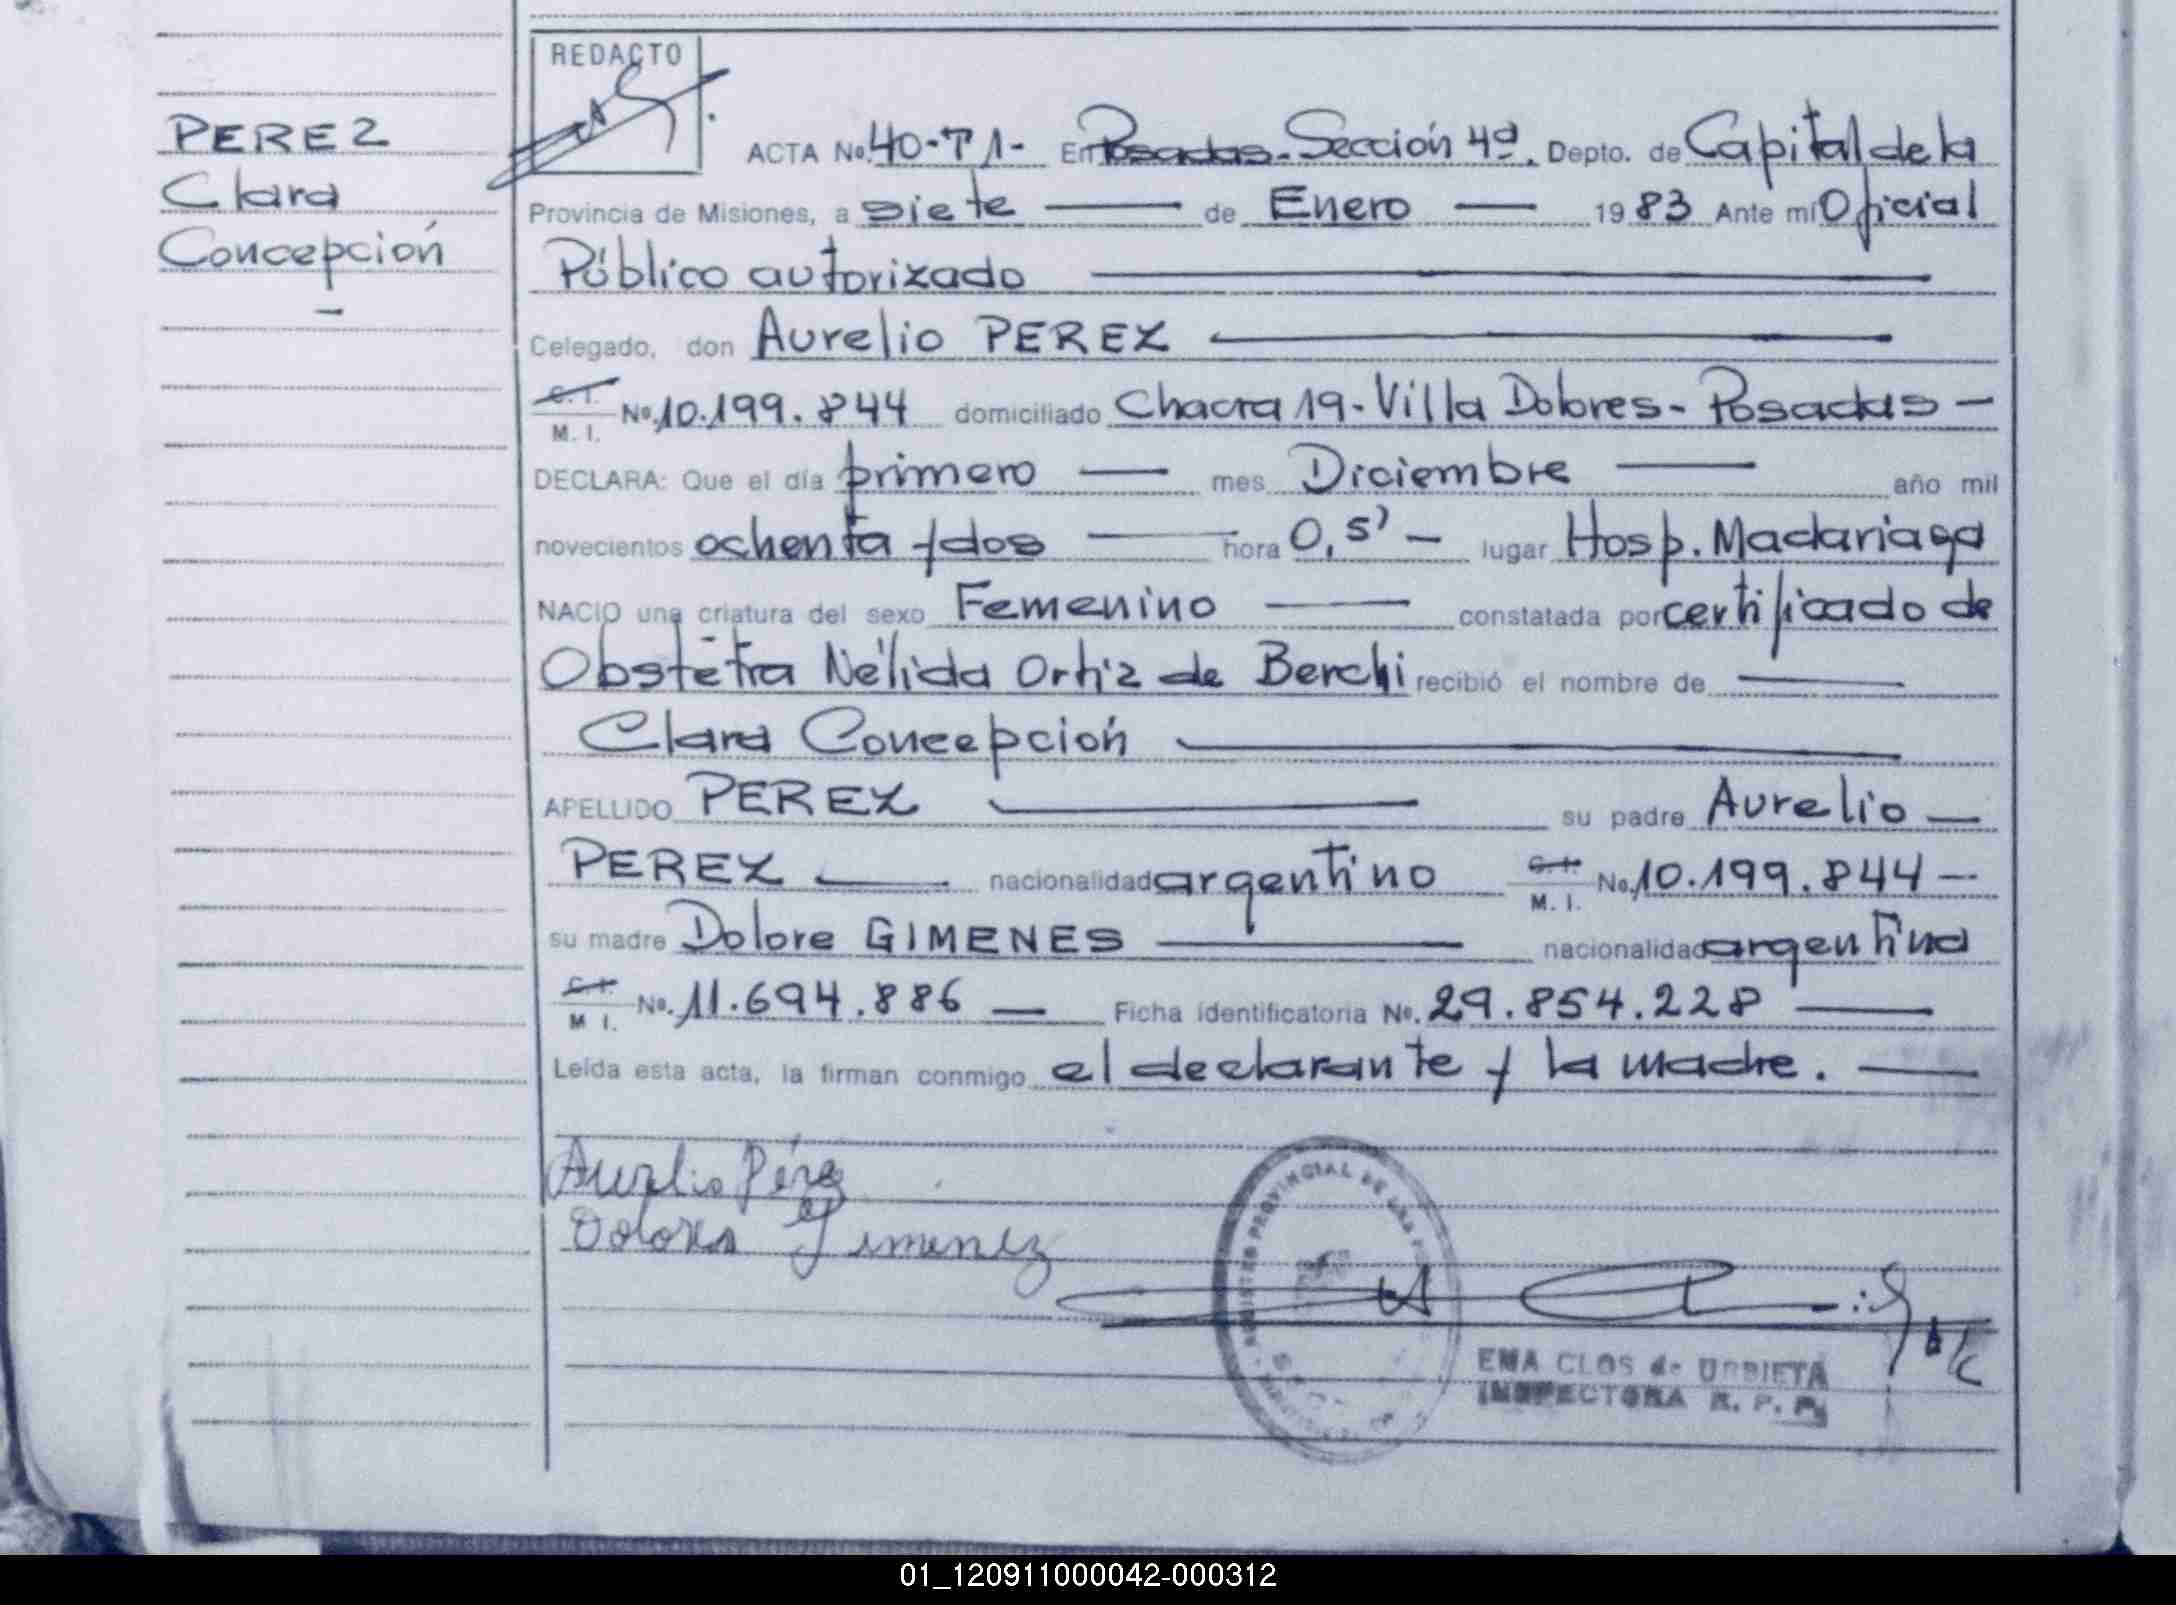 REDACTO
PEREZ
Clara
Concepción
-
ACTA No. 40-T1- En Posadas-Sección 4ª. Depto. de Capital de la
Provincia de Misiones, a siete — de Enero — 1983 Ante mí Oficial
Público autorizado —
Celegado, don Aurelio PEREZ —
C. I.
M. I. No. 10.199.844 domiciliado Chacra 19-Villa Dolores-Posadas-
DECLARA: Que el día primero — mes Diciembre — año mil
novecientos ochenta y dos — hora 0,5' - lugar Hosp. Madariaga
NACIO una criatura del sexo Femenino — constatada por certificado de
Obstetra Nélida Ortiz de Berchi recibió el nombre de —
Clara Concepción —
APELLIDO PEREZ — su padre Aurelio —
PEREZ — nacionalidad argentino C. I.
M. I. No. 10.199.844-
su madre Dolore GIMENES — nacionalidad argentina
C. I.
M I. No. 11.694.886 — Ficha identificatoria No. 29.854.228 —
Leída esta acta, la firman conmigo el declarante y la madre. —
Aurelio Pérez
Dolores Jimenez
PROVINCIAL DE
EMA CLOS de URBIETA
INSPECTORA R. P. P.
01_120911000042-000312